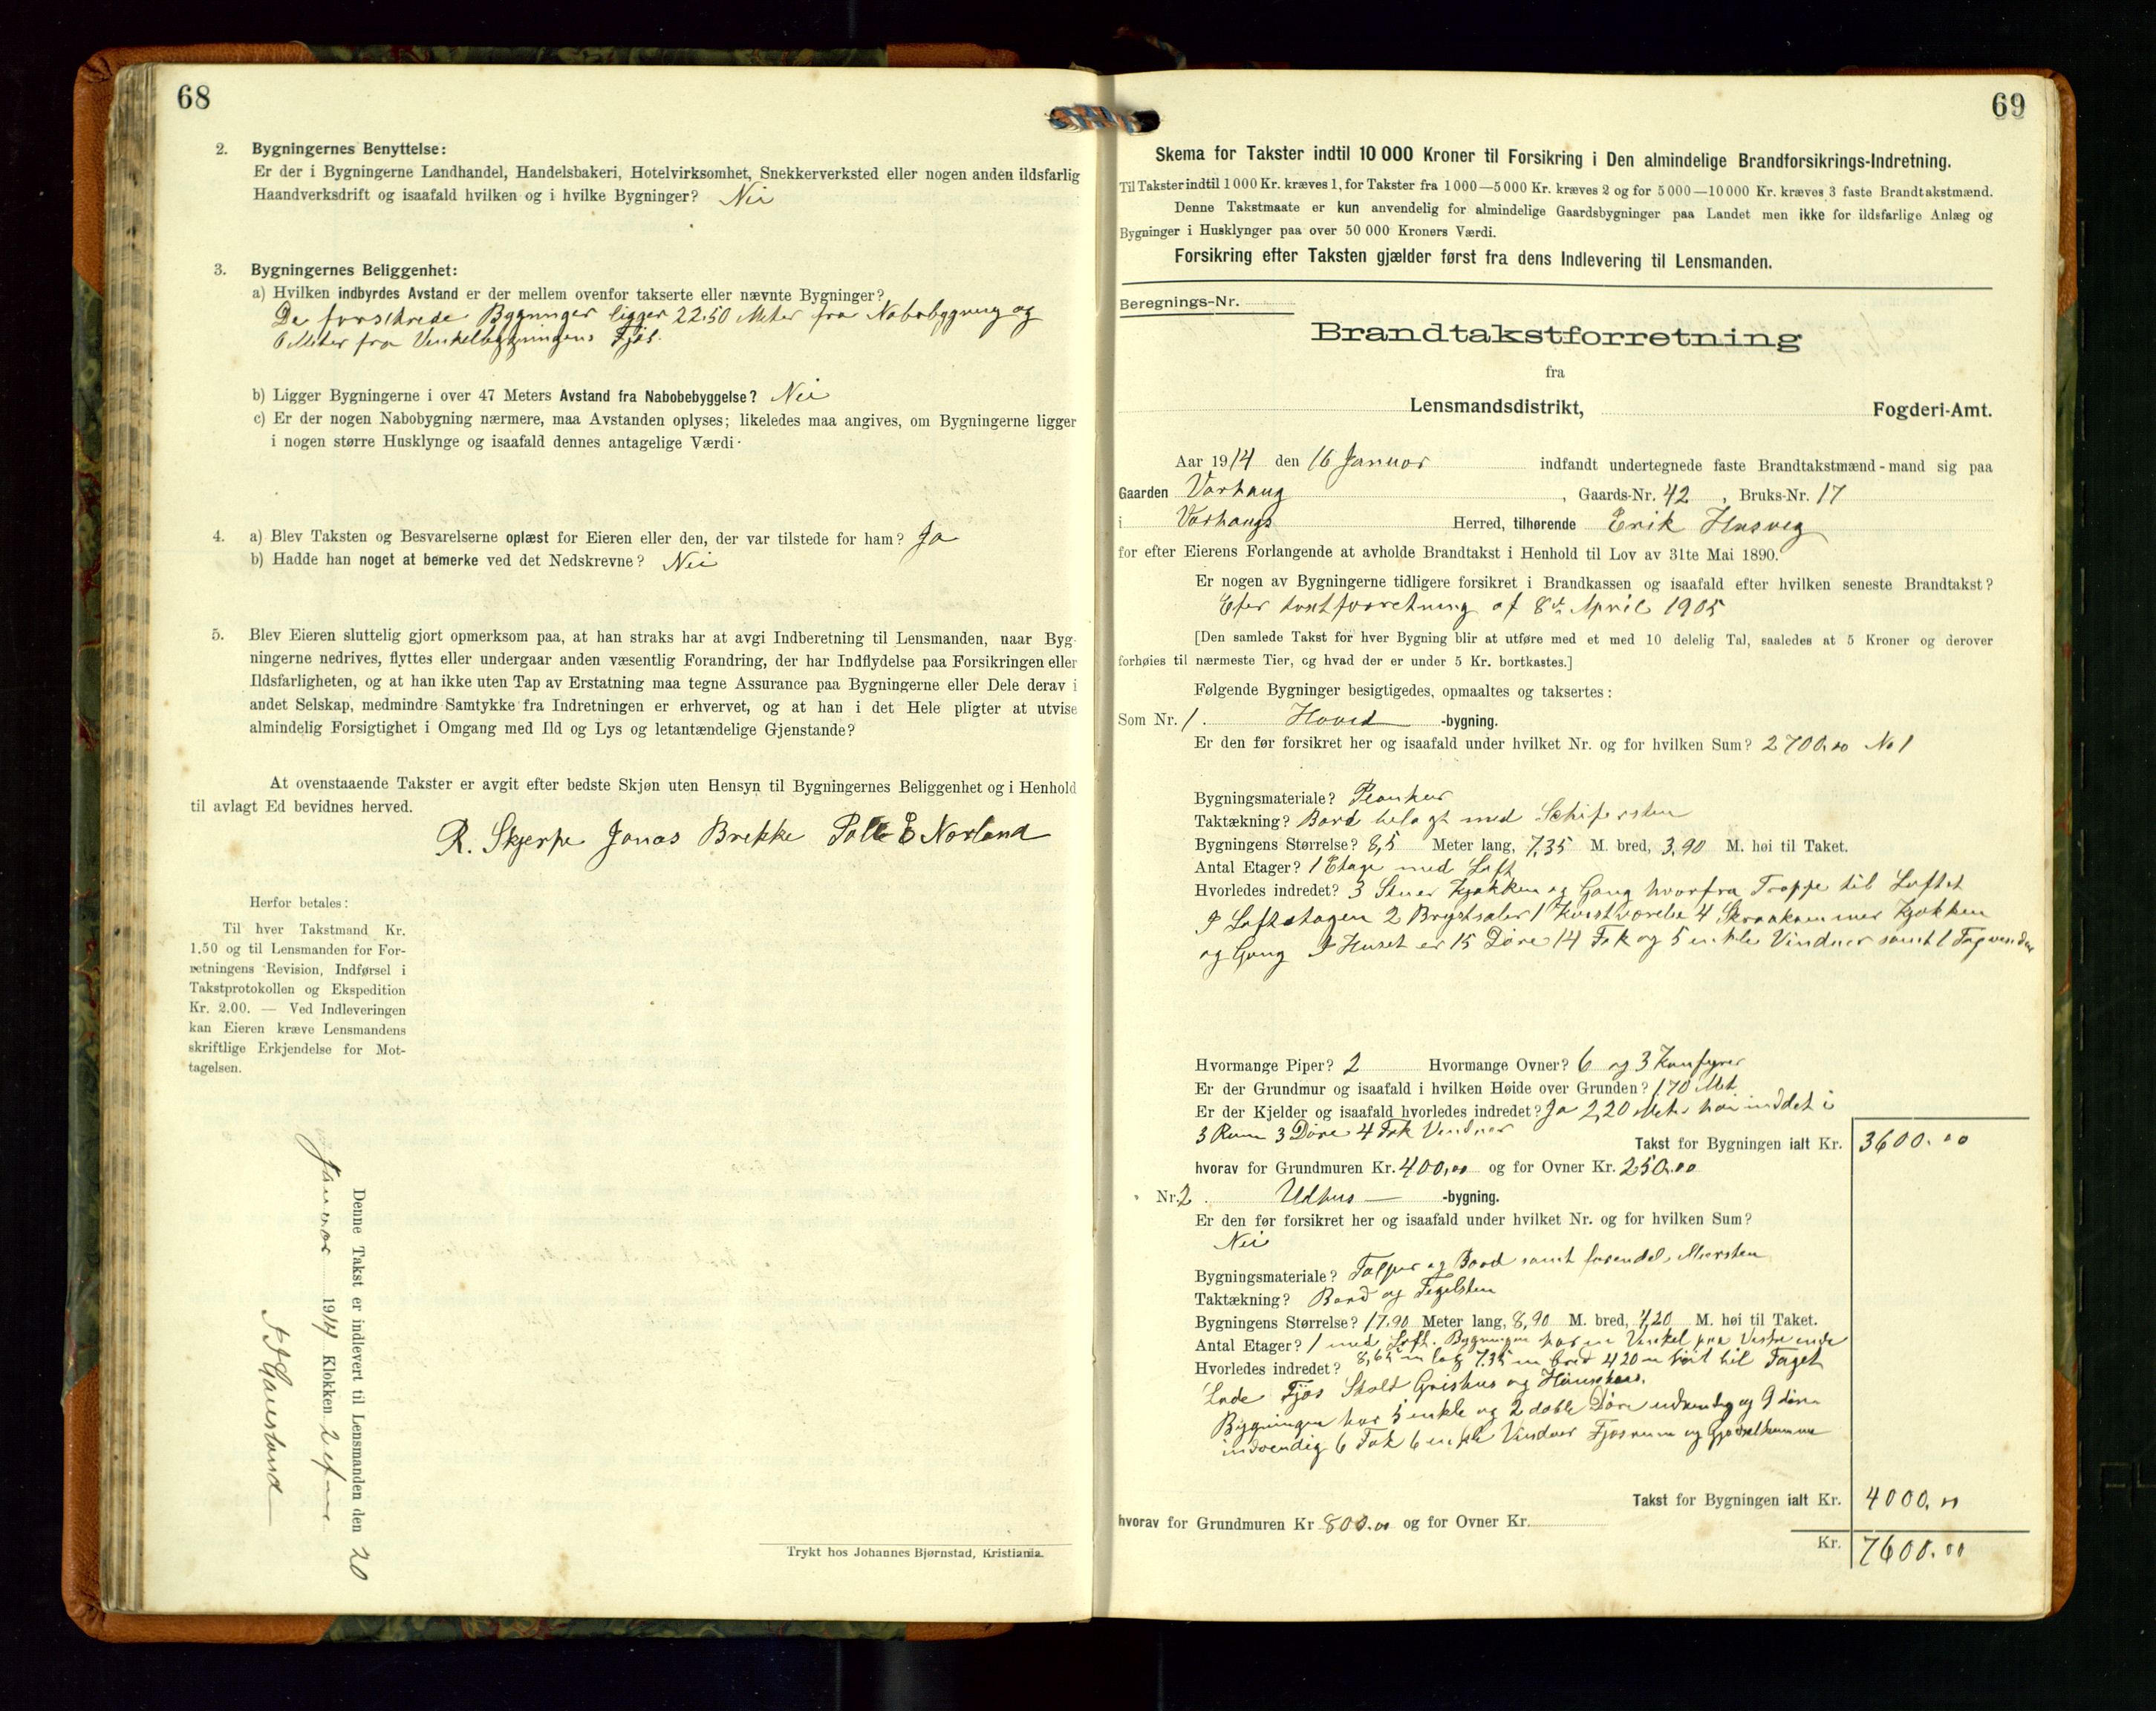 68
2. Bygningernes Benyttelse:
Er der i Bygningerne Landhandel, Handelsbakeri, Hotelvirksomhet, Snekkerverksted eller nogen anden ildsfarlig
Haandverksdrift og isaafald hvilken og i hvilke Bygninger? Nei
3. Bygningernes Beliggenhet:
a) Hvilken indbyrdes Avstand er der mellem ovenfor takserte eller nævnte Bygninger?
De forsikrede Bygninger ligger 22.50 Meter fra Nabobygning og
6 Meter fra Vinkelbygningens Fjøs.
b) Ligger Bygningerne i over 47 Meters Avstand fra Nabobebyggelse? Nei
c) Er der nogen Nabobygning nærmere, maa Avstanden oplyses; likeledes maa angives, om Bygningerne ligger
i nogen større Husklynge og isaafald dennes antagelige Værdi.
4. a) Blev Taksten og Besvarelserne oplæst for Eieren eller den, der var tilstede for ham? Ja
b) Hadde han noget at bemerke ved det Nedskrevne? Nei
5. Blev Eieren sluttelig gjort opmerksom paa, at han straks har at avgi Indberetning til Lensmanden, naar Byg-
ningerne nedrives, flyttes eller undergaar anden væsentlig Forandring, der har Indflydelse paa Forsikringen eller
Ildsfarligheten, og at han ikke uten Tap av Erstatning maa tegne Assurance paa Bygningerne eller Dele derav i
andet Selskap, medmindre Samtykke fra Indretningen er erhvervet, og at han i det Hele pligter at utvise
almindelig Forsigtighet i Omgang med Ild og Lys og letantændelige Gjenstande?
At ovenstaaende Takster er avgit efter bedste Skjøn uten Hensyn til Bygningernes Beliggenhet og i Henhold
til avlagt Ed bevidnes herved.
R. Skjerpe Jonas Brekke Palle E Norland
Herfor betales:
Til hver Takstmand Kr.
1.50 og til Lensmanden for For-
retningens Revision, Indførsel i
Takstprotokollen og Ekspedition
Kr. 2.00. — Ved Indleveringen
kan Eieren kræve Lensmandens
skriftlige Erkjendelse for Mot-
tagelsen.
Denne Takst er indlevert til Lensmanden den 20
Januar 1914 Klokken 2 ef
Trykt hos Johannes Bjørnstad, Kristiania.
69
Skema for Takster indtil 10 000 Kroner til Forsikring i Den almindelige Brandforsikrings-Indretning.
Til Takster indtil 1000 Kr. kræves 1, for Takster fra 1000—5000 Kr. kræves 2 og for 5000—10000 Kr. kræves 3 faste Brandtakstmænd.
Denne Takstmaate er kun anvendelig for almindelige Gaardsbygninger paa Landet men ikke for ildsfarlige Anlæg og
Bygninger i Husklynger paa over 50 000 Kroners Værdi.
Forsikring efter Taksten gjælder først fra dens Indlevering til Lensmanden.
Beregnings-Nr.
Brandtakstforretning
fra
Lensmandsdistrikt, Fogderi-Amt.
Aar 1914 den 16 Januar indfandt undertegnede faste Brandtakstmænd-mand sig paa
Gaarden Varhaug, Gaards-Nr. 42, Bruks-Nr. 17
i Varhaugs Herred, tilhørende Erik Husveg
for efter Eierens Forlangende at avholde Brandtakst i Henhold til Lov av 31te Mai 1890.
Er nogen av Bygningerne tidligere forsikret i Brandkassen og isaafald efter hvilken seneste Brandtakst?
Efter taxtforretning af 8de April 1905
[Den samlede Takst for hver Bygning blir at utføre med et med 10 delelig Tal, saaledes at 5 Kroner og derover
forhøies til nærmeste Tier, og hvad der er under 5 Kr. bortkastes.]
Følgende Bygninger besigtigedes, opmaaltes og taksertes:
Som Nr. 1. Hoved -bygning.
Er den før forsikret her og isaafald under hvilket Nr. og for hvilken Sum? 2700.00 No 1
Bygningsmateriale? Plankur
Taktækning? Bord belagt med Schifersten
Bygningens Størrelse? 8,5 Meter lang, 7,35 M. bred, 3,90 M. høi til Taket.
Antal Etager? 1 Etage med Loft
Hvorledes indredet? 3 Stuer Kjøkken og Gang hvorfra Trappe til Loftet
I Loftetagen 2 Brystsaler 1 Kvistværelse 4 Skraakammer Kjøkken
og Gang I Huset er 15 Døre 14 Fak og 5 enkle Vinduer samt 1 Tagvindue
Hvormange Piper? 2 Hvormange Ovner? 6 og 3 Komfyrer
Er der Grundmur og isaafald i hvilken Høide over Grunden? 1.70 Met
Er der Kjelder og isaafald hvorledes indredet? Ja 2,20 Meter høi inddet i
3 Rum 3 Døre 4 Fak Vinduer
Takst for Bygningen ialt Kr. 3600.00
hvorav for Grundmuren Kr. 400,00 og for Ovner Kr. 250.00
Nr. 2. Udhus -bygning.
Er den før forsikret her og isaafald under hvilket Nr. og for hvilken Sum?
Nei
Bygningsmateriale? og Bord samt Mursten
Taktækning? Bord og Tegelsten
Bygningens Størrelse? 17.90 Meter lang, 8,90 M. bred, 4,20 M. høi til Taket.
Antal Etager? 1 med Loft. Bygningen har en Vinkel paa Vestre ende
Hvorledes indredet? 8,65 m lag 7.35 m bred 4 20 m høit til Taget
Lade Fjøs Skold Grishus og Hønsehus.
Bygningen har 5 enkle og 2 doble Døre udvendig og 9 døre
indvendig 6 Fak 6 enkle Vinduer Fjøsrum og Gjødselkumme
Takst for Bygningen ialt Kr. 4000.00
hvorav for Grundmuren Kr 800.00 og for Ovner Kr.
Kr. 7600.00